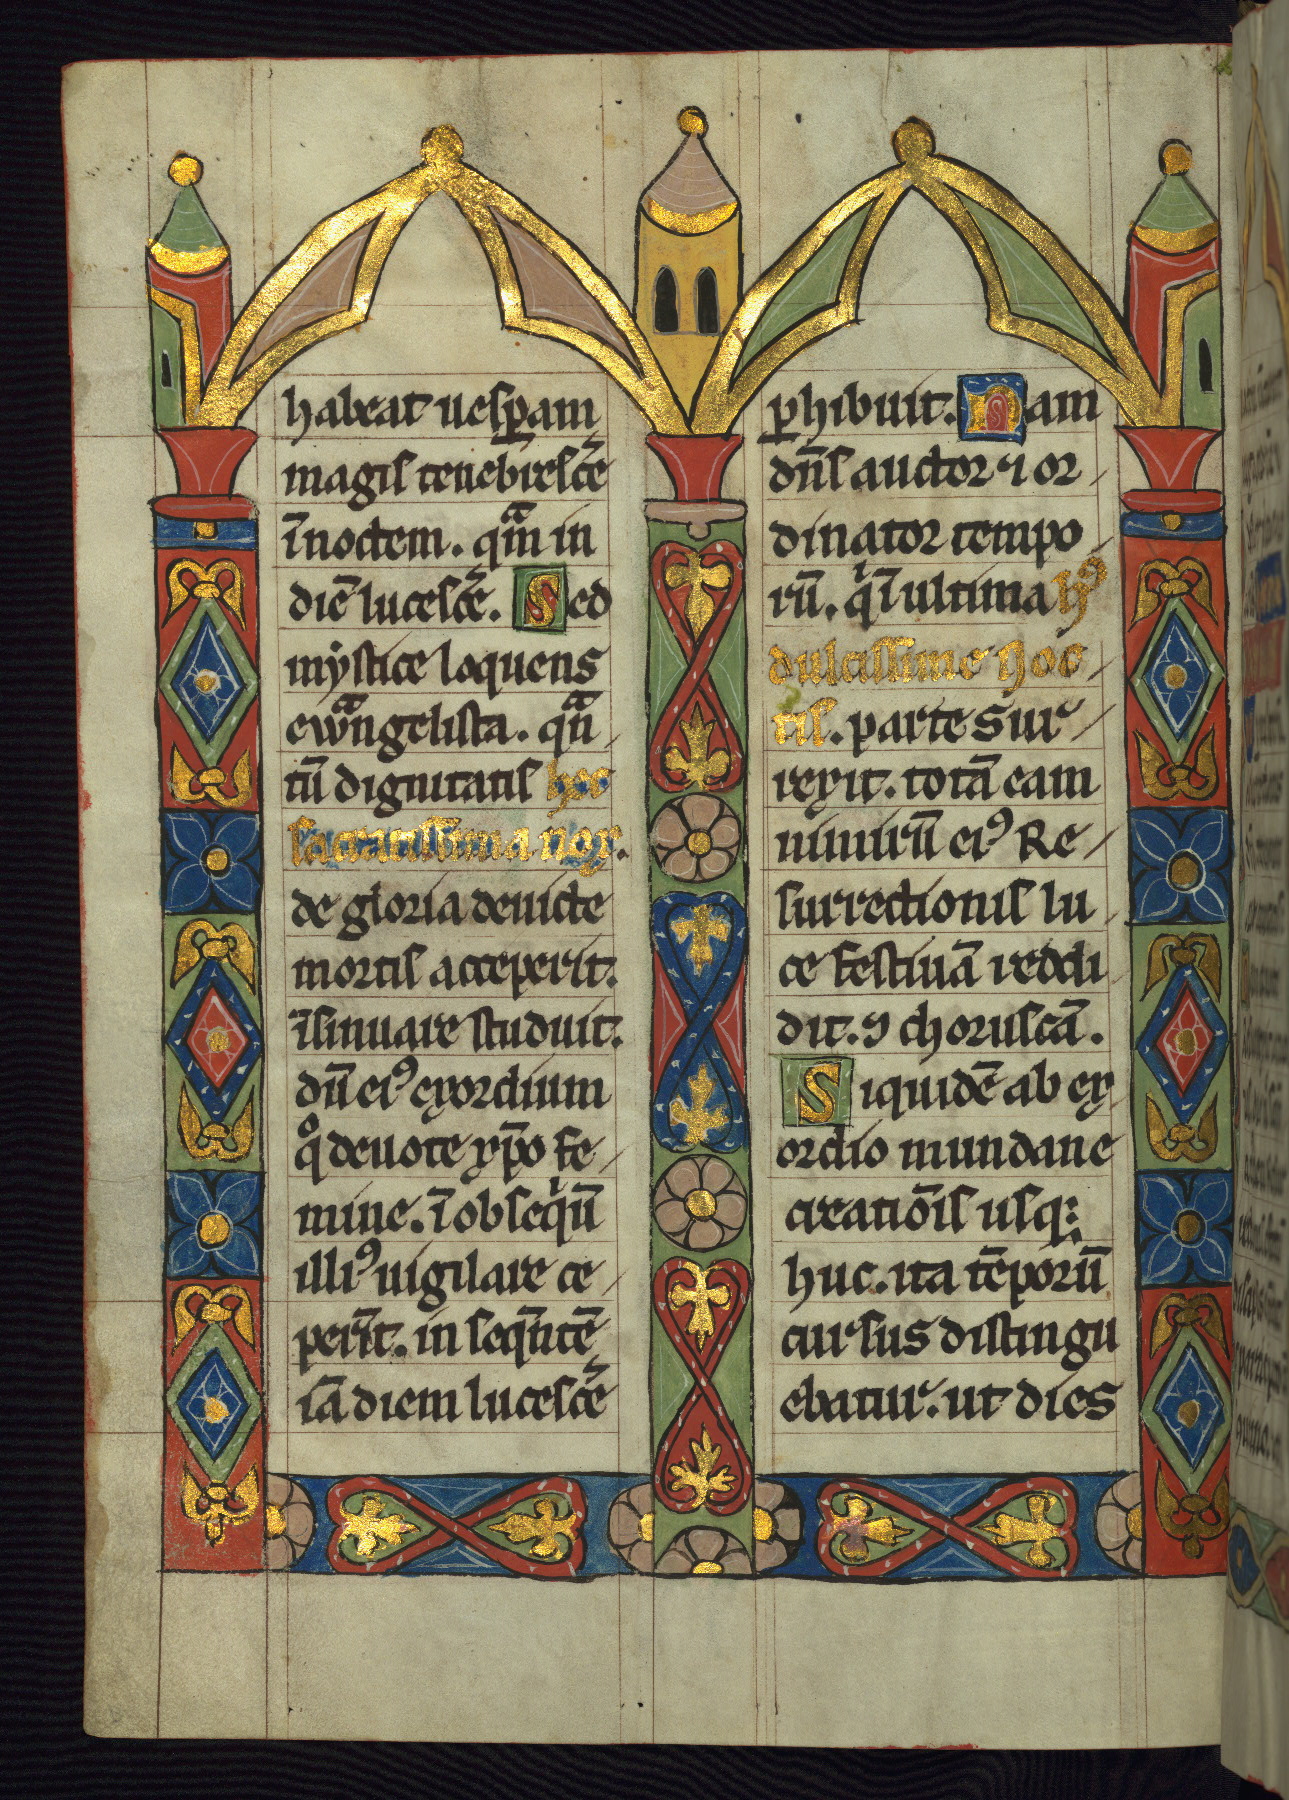 habeat uesꝑam
magis tenebrescē
ī noctem. qm̄ in
diē lucescē. Sed
mystice loquens
ewangelista. qn̄
tū dignitatis hec
sacratissima nox.
de gloria deuicte
mortis acceperit.
īsinuare studuit.
dū eiꝰ exordium
qͦ deuote xp̄o fe
mine. ī obseqͥū
illiꝰ uigilare ce
per̄t. in seqn̄tē
iā diem lucescē
ꝑhibuit. Nam
dn̄s auctor ⁊ or
dinator tempo
rū. qͥ ī ultima hꝰ
dulcissime noc
tis. parte sur
rexit. totā eam
nimirū eiꝰ Re
surrectionis lu
ce festiuā reddi
dit. ꝯ choruscā.
Siquidē ab ex
ordio mundane
creatiōis usqꝫ
huc. ita tēporū
cursus distingu
ebatur. ut dies